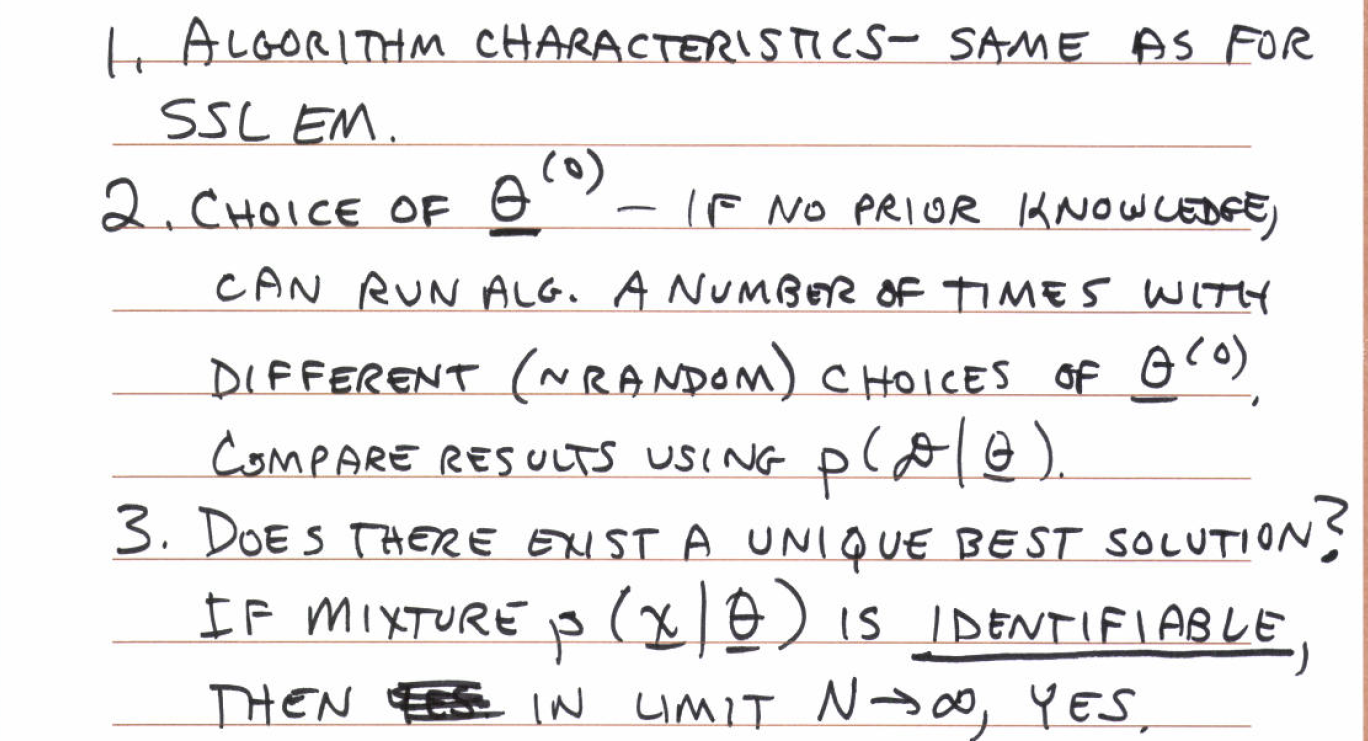 1. ALGORITHM CHARACTERISTICS- SAME AS FOR
SSL EM.
2. CHOICE OF θ^(0) – IF NO PRIOR KNOWLEDGE,
CAN RUN ALG. A NUMBER OF TIMES WITH
DIFFERENT (~RANDOM) CHOICES OF θ^(0).
COMPARE RESULTS USING p(𝒟|θ).
3. DOES THERE EXIST A UNIQUE BEST SOLUTION?
IF MIXTURE p(x|θ) IS IDENTIFIABLE,
THEN IN LIMIT N→∞, YES.